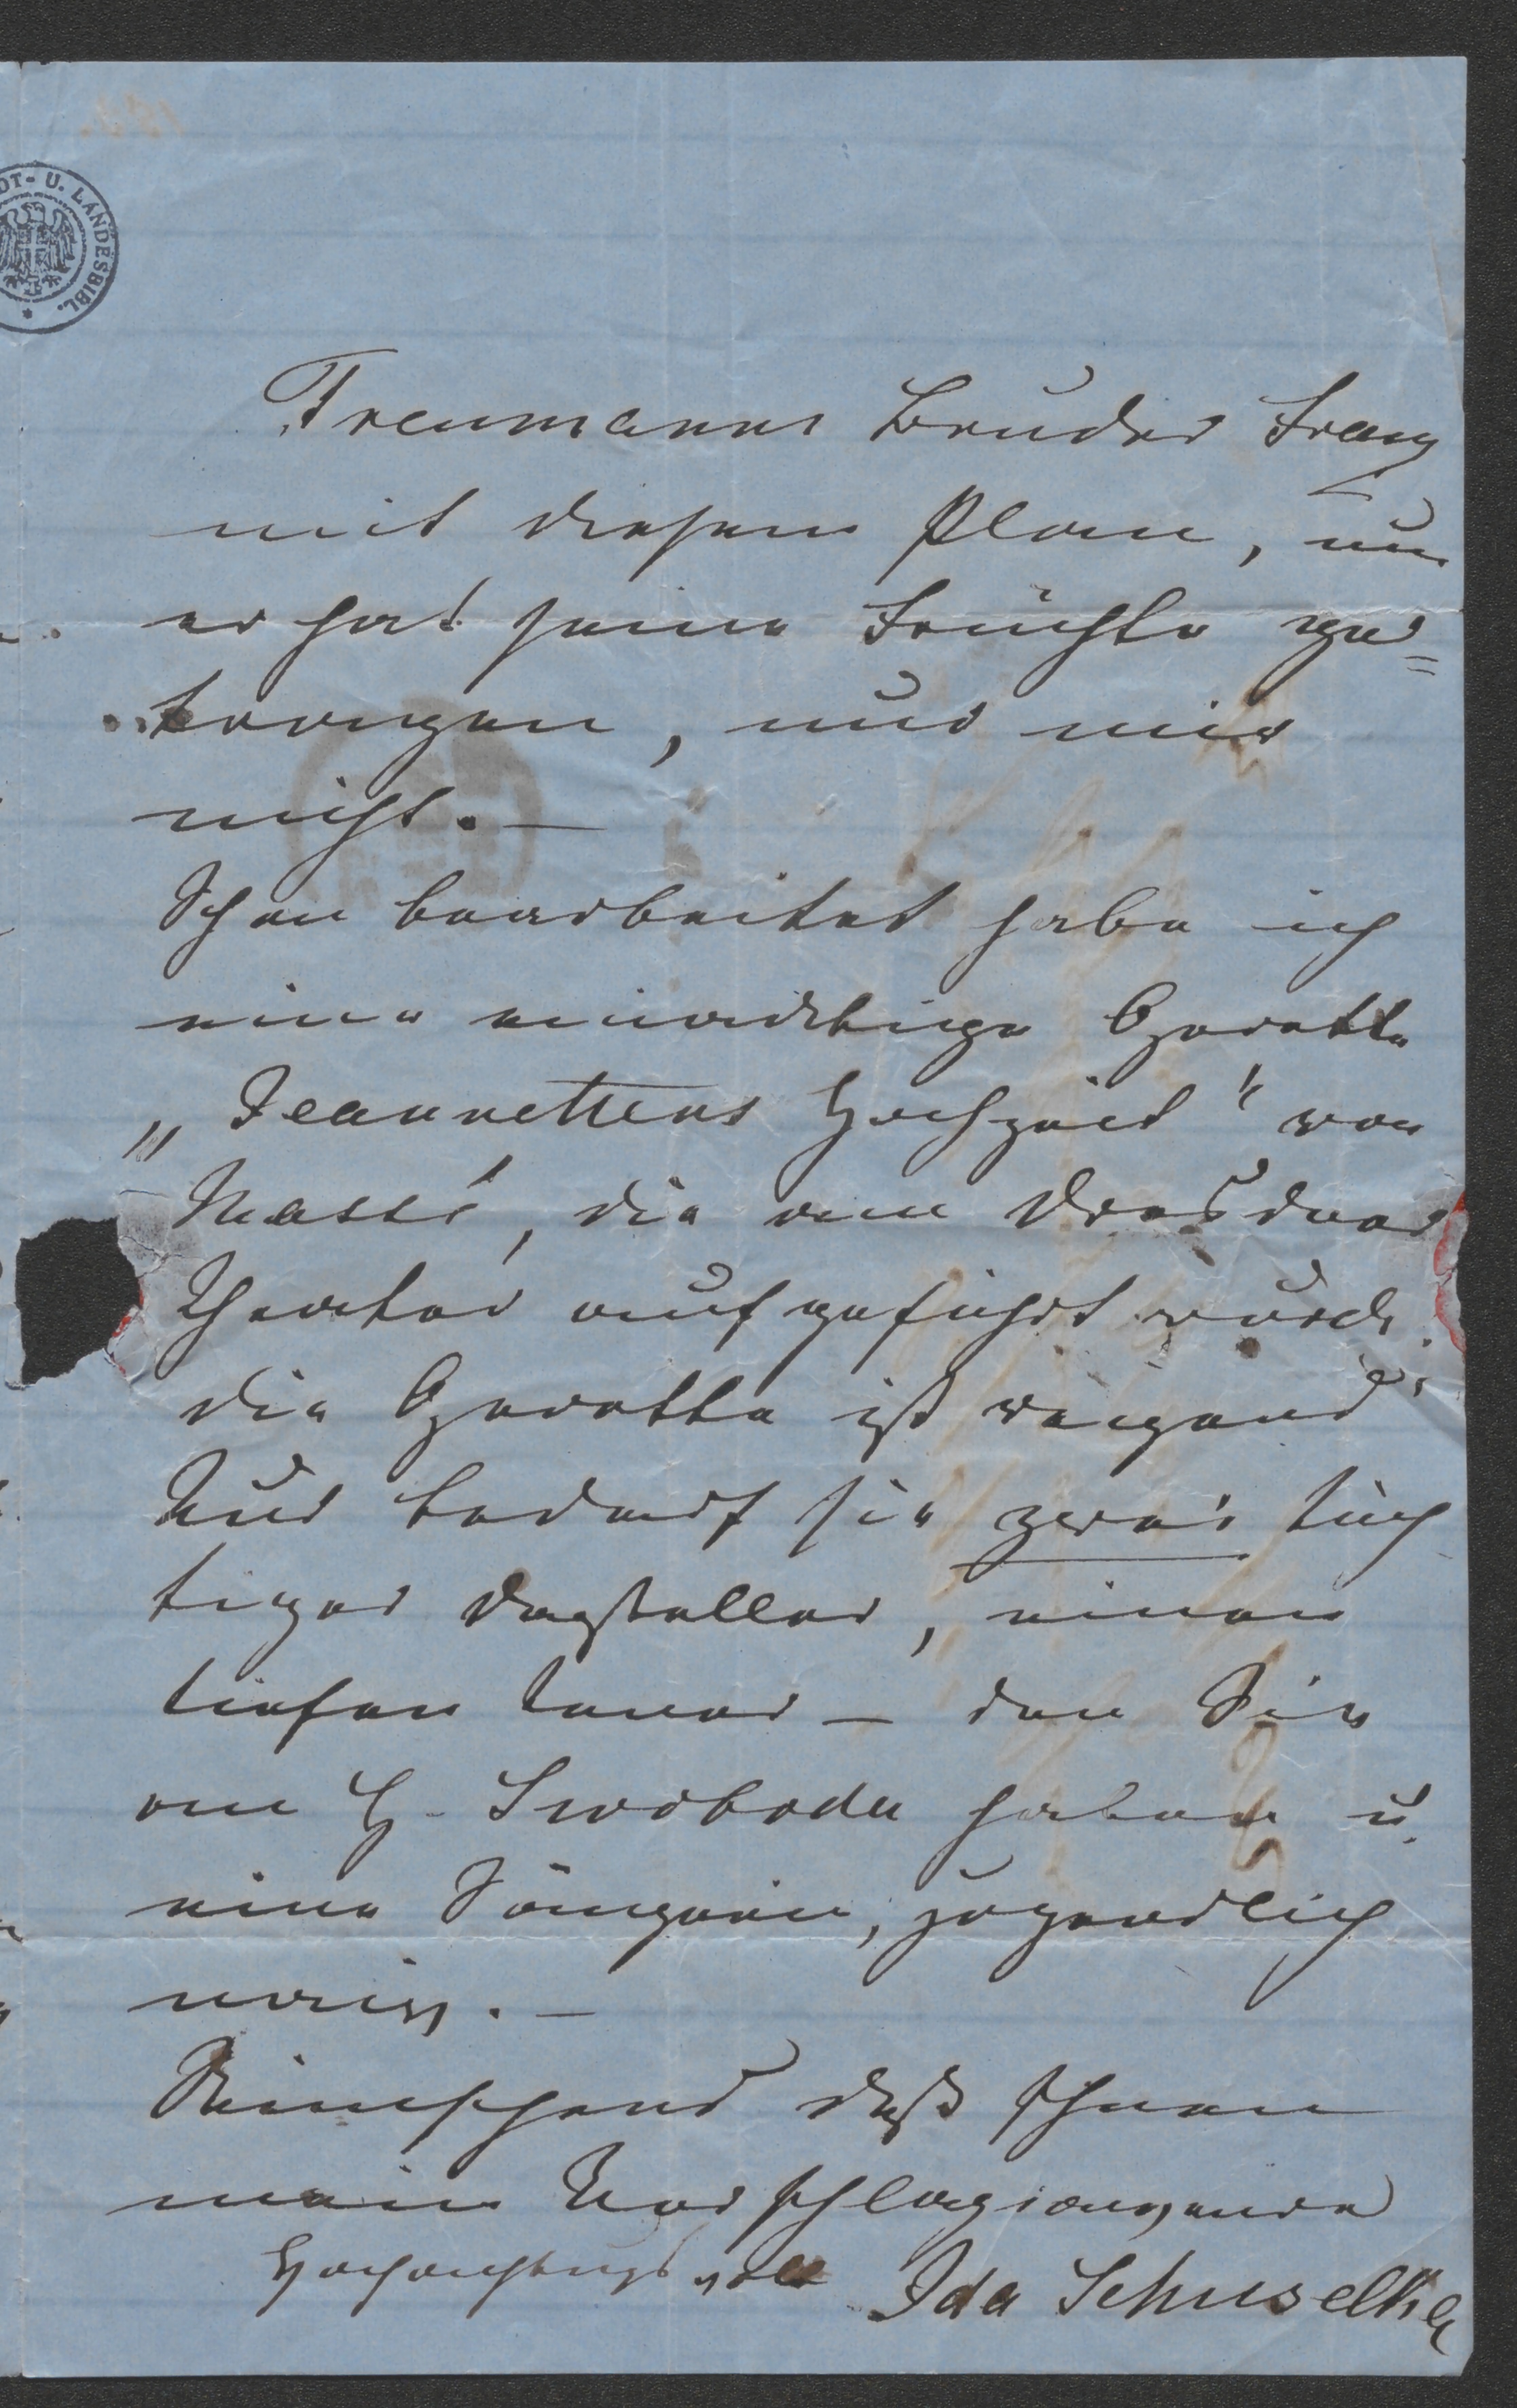 DT- U. LANDESBIBL.
Treumanns Bruder Franz
mit diesem Plan, nun
er hat seine Früchte ge=
tragen, nur mir
nicht. —
Schon bearbeitet habe ich
eine einaktige Operette
„Jeannettens Hochzeit" von
Massé, die am Dresdner
Theater aufgeführt wurde.
die Operette ist reizend.
Nur bedarf sie zwei tüch
tiger Darsteller, einen
tiefen Tenor — den Sie
an H. Swoboda haben u.
eine Sängerin, jugendlich
naiv. —
Wünschend daß Ihnen
mein Vorschlag
Hochachtungsvoll Ida Schuselka